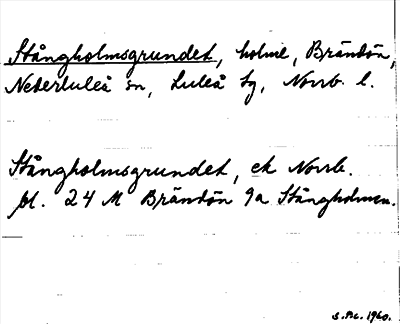 Stångholmsgrundet, holme, Brändön,
Nederluleå sn, Luleå tg, Norrb. l.
Stångholmsgrundet, ek Norrb.
bl. 24 M Brändön 9a Stångholmen.
1960.